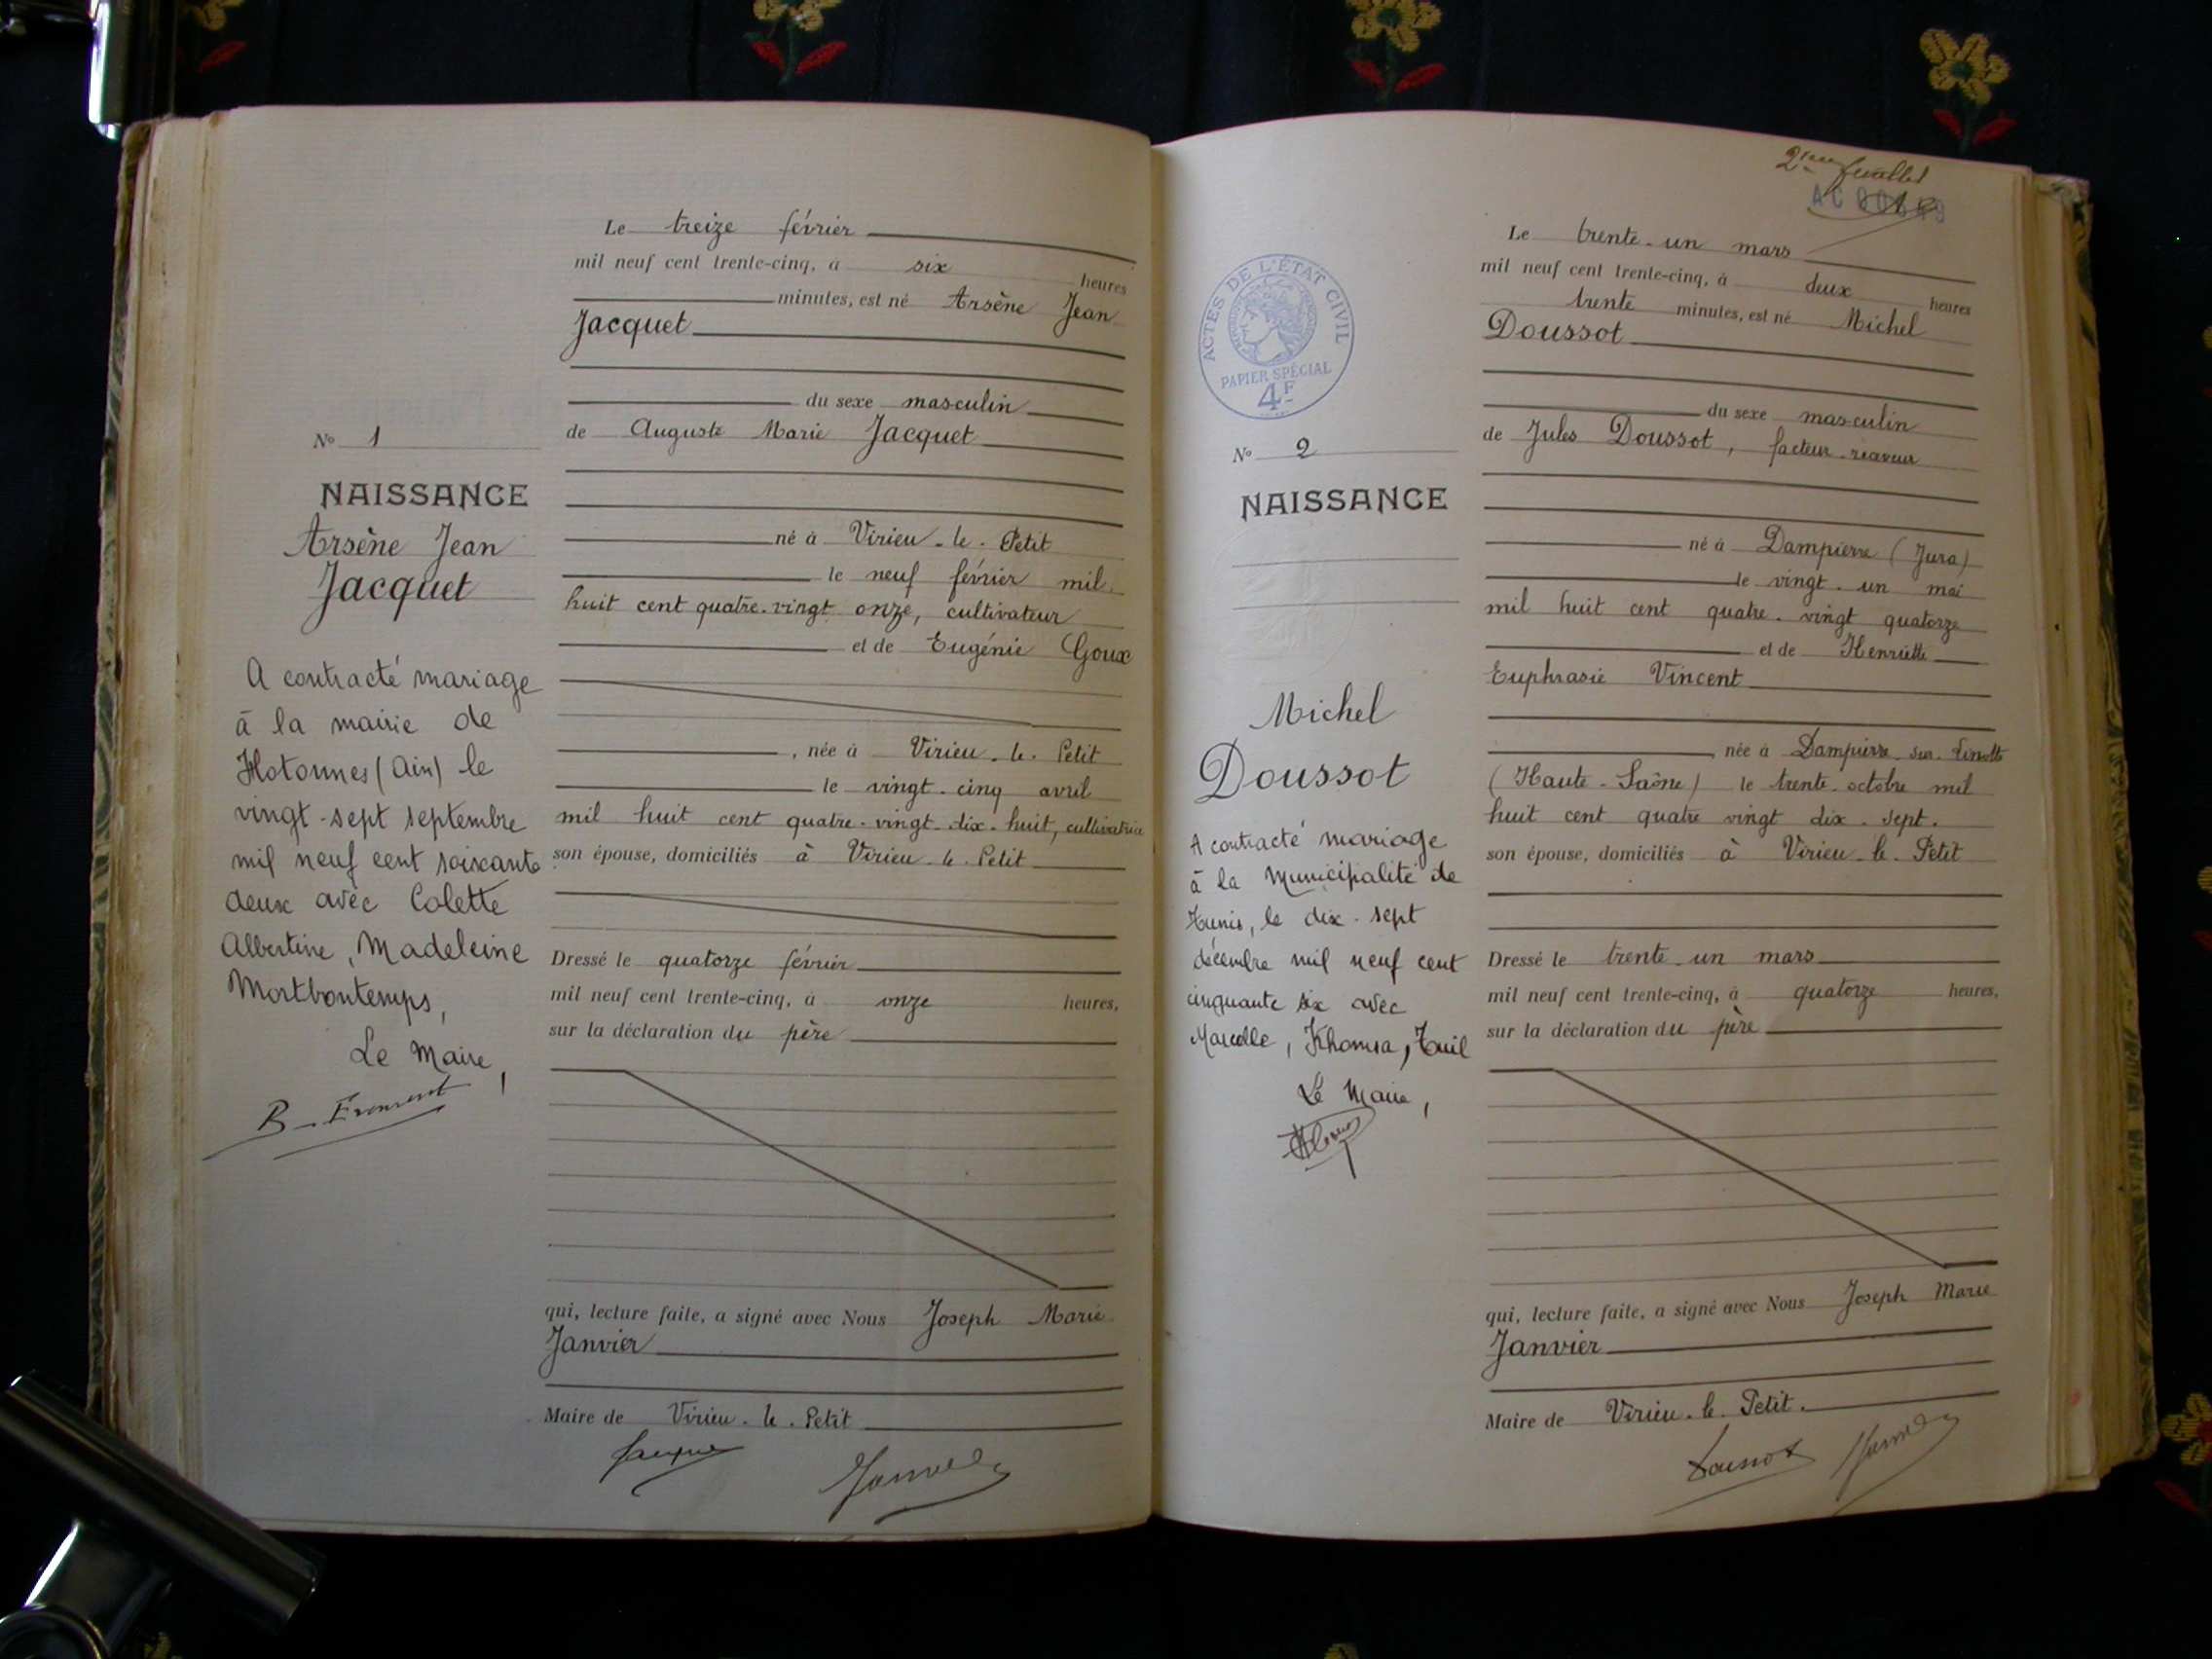 Le treize février
mil neuf cent trente-cinq, à six heures
minutes, est né Arsène Jean
Jacquet
du sexe masculin
de Auguste Marie Jacquet
né à Virieu-le-Petit
le neuf février mil
huit cent quatre-vingt onze, cultivateur
et de Eugénie Goux
, née à Virieu-le-Petit
le vingt-cinq avril
mil huit cent quatre-vingt-dix-huit, cultivatrice
son épouse, domiciliés à Virieu-le-Petit
Dressé le quatorze février
mil neuf cent trente-cinq, à onze heures,
sur la déclaration du père
qui, lecture faite, a signé avec Nous Joseph Marie
Janvier
Maire de Virieu-le-Petit
No 1
NAISSANCE
Arsène Jean
Jacquet
A contracté mariage
à la mairie de
Hotonnes (Ain) le
vingt-sept septembre
mil neuf cent soixante
deux avec Colette
Albertine, Madeleine
Montbontemps,
Le Maire,
2eme feuillet
Le trente-un mars
mil neuf cent trente-cinq, à deux heures
trente minutes, est né Michel
Doussot
du sexe masculin
de Jules Doussot, facteur-receveur
né à Dampierre (Jura)
le vingt-un mai
mil huit cent quatre-vingt quatorze
et de Henriette
Euphrasie Vincent
née à Dampierre-sur-Linotte
(Haute-Saône) le trente octobre mil
huit cent quatre vingt dix-sept.
son épouse, domiciliés à Virieu-le-Petit
Dressé le trente-un mars
mil neuf cent trente-cinq, à quatorze heures,
sur la déclaration du père
qui, lecture faite, a signé avec Nous Joseph Marie
Janvier
Maire de Virieu-le-Petit.
Doussot
ACTES DE L'ÉTAT CIVIL
PAPIER SPÉCIAL
4F
No 2
NAISSANCE
Michel
Doussot
A contracté mariage
à la Municipalité de
Tunis, le dix-sept
décembre mil neuf cent
cinquante six avec
Marcelle, Khomsa, Touil
Le Maire,